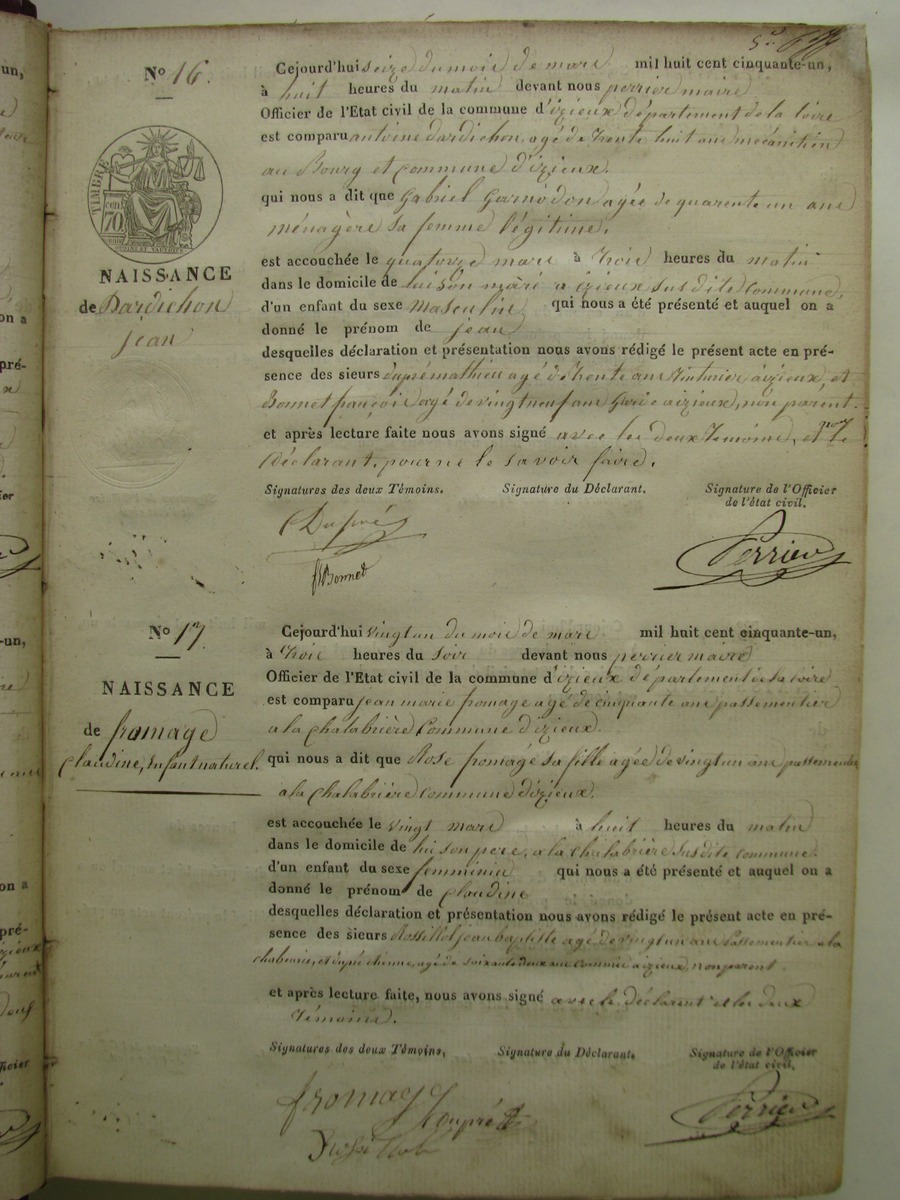 5e
No 16.
Cejourd'hui seize du mois de mars mil huit cent cinquante-un,
à huit heures du matin devant nous perrier maire
Officier de l'Etat civil de la commune d'izieux département de la loire
est comparu antoine dardichon, agé de trente huit ans mécanicien
au Bourg et commune d'izieux.
qui nous a dit que Gabriel Garnodon agée de quarente un ans
ménagère sa femme légitime,
TIMBRE
cen
70
NAISSANCE
de Dardichon
jean
est accouchée le quatorze mars à trois heures du matin
dans le domicile de lui son mari a izieux susdite commune,
d'un enfant du sexe masculin qui nous a été présenté et auquel on a
donné le prénom de jean
desquelles déclaration et présentation nous avons rédigé le présent acte en pré-
sence des sieurs dupré mathieu agé de trente ans teinturier, à izieux, et
Bonnet françois agé de vingt neuf ans Garde a izieux, non parent.
et après lecture faite nous avons signé avec les deux témoins, et non le
Déclarant, pour ne le savoir faire.
Signatures des deux Témoins. Signature du Déclarant. Signature de l'Officier
de l'état civil.
Dupré
Bonnet
Perrier
No 17.
Cejourd'hui vingt un du mois de mars mil huit cent cinquante-un,
à trois heures du soir devant nous perrier maire
NAISSANCE
Officier de l'Etat civil de la commune d'izieux département de la loire
est comparu jean marie fromage agé de cinquante ans passementier
de fromage
a la chalabrière Commune d'izieux.
Claudine, Enfant naturel.
qui nous a dit que Rose fromage sa fille agée de vingt un ans passementière
a la chalabrière commune d'izieux.
est accouchée le vingt mars à huit heures du matin
dans le domicile de lui son pere, a la chalabrière susdite commune.
d'un enfant du sexe femminin qui nous a été présenté et auquel on a
donné le prénom de Claudine
desquelles déclaration et présentation nous avons rédigé le présent acte en pré-
sence des sieurs jean baptiste agé de vingt un ans Passementier a la
et dupré etienne, agé de soixante deux ans a izieux, non parent.
et après lecture faite, nous avons signé avec le déclarent et les deux
témoins.
Signatures des deux Témoins, Signature du Déclarant. Signature de l'Officier
de l'état civil,
fromage
dupré
Perrier